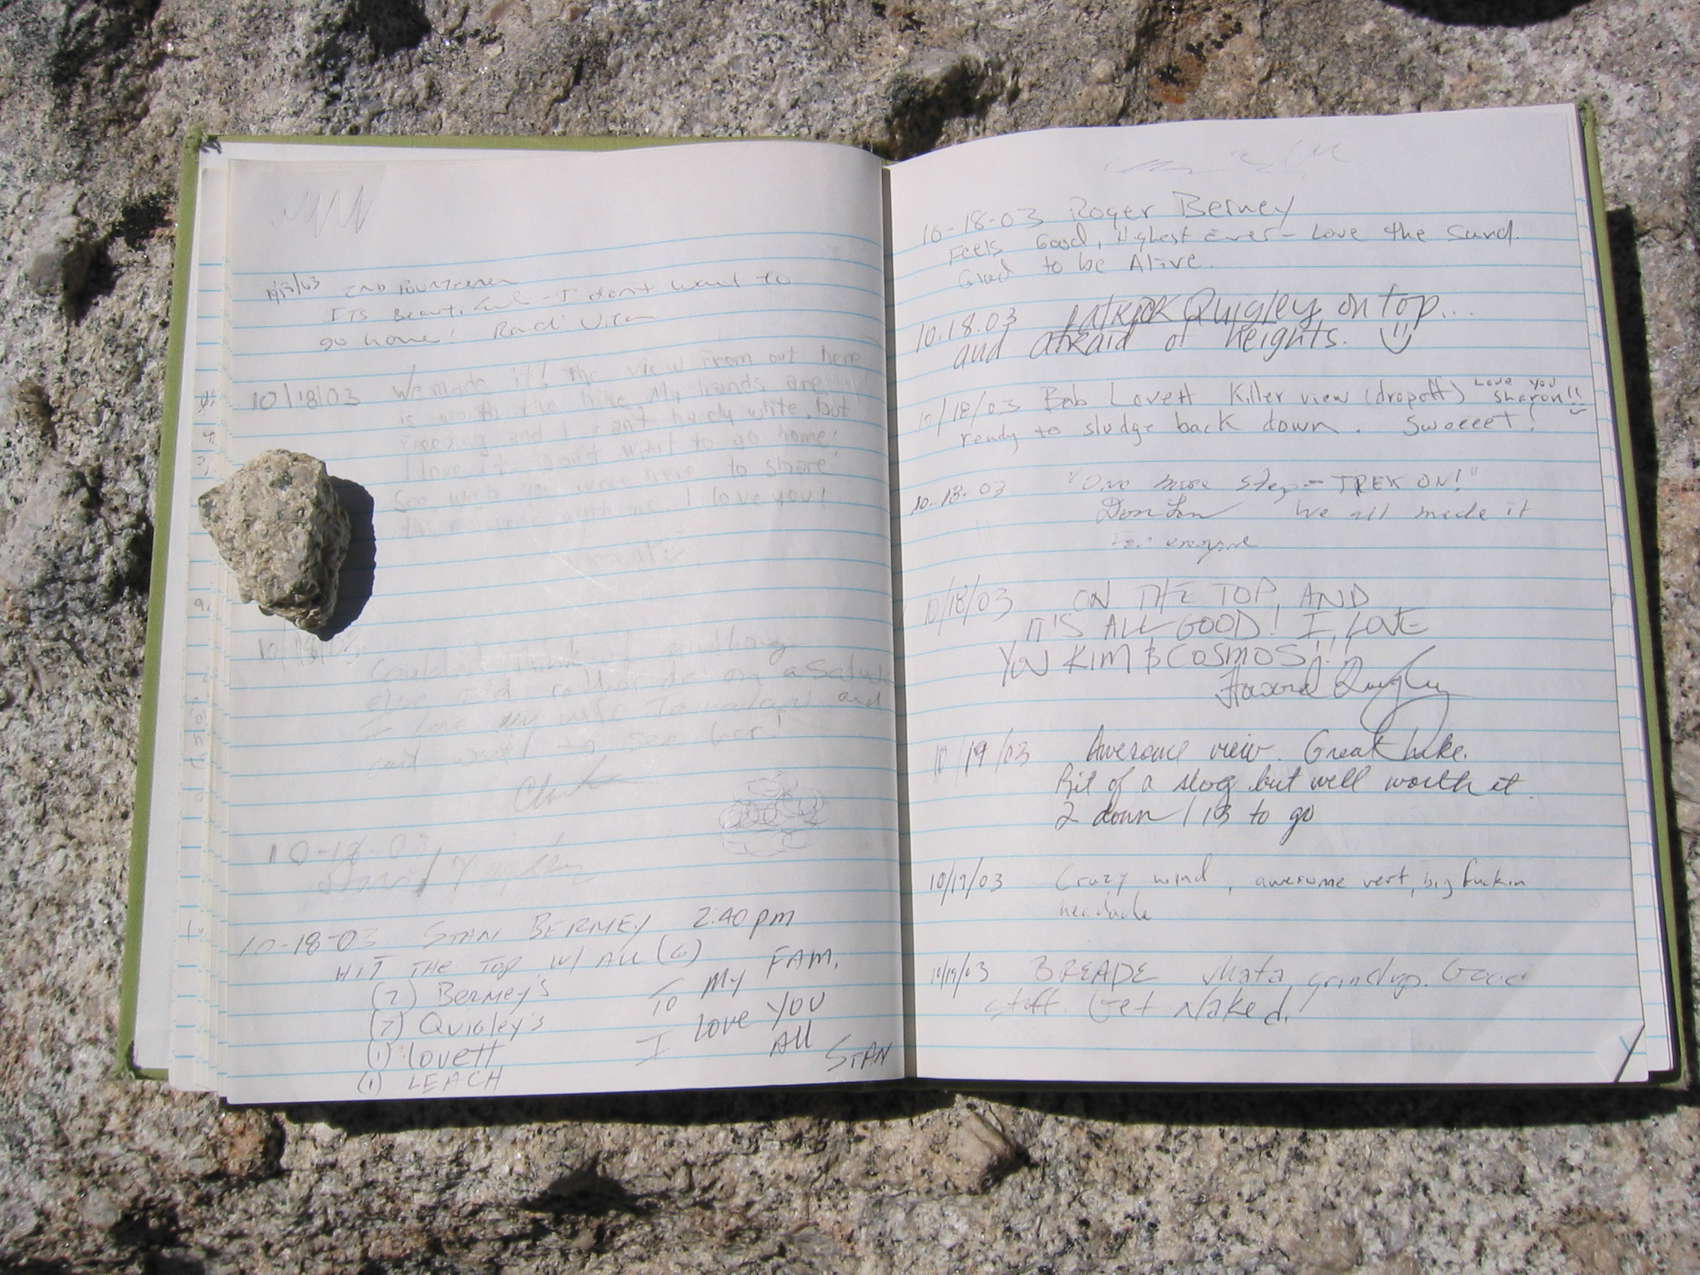 2nd fourteener
ITS Beautiful - I don't want to
go home!
10/18/03 We made it! The view from out here
is worth the hike. My hands are
freezing and I can't hardly write, but
I love it. Don't want to go home!
you were here to share
with me. I love you!
10/18/03
Couldn't think of anything
else I'd rather do on a
I love my wife and
can't wait to see her!
10-18-03
10-18-03 STAN BERNEY 2:40 pm
HIT THE TOP w/ ALL (6)
(2) BERNEY'S
(2) QUIGLEY'S
(1) Lovett
(1) LEACH
To My FAM,
I Love you
All
STAN
10-18-03 Roger Berney
Feels Good, Highest Ever - Love the
Glad to be Alive.
10.18.03 Patrick Quigley on top...
and afraid of heights.
10/18/03 Bob Lovett Killer view (dropoff) Love you Sharon!!
ready to sludge back down. Sweeeet!
10.18.03 "One more step - TREK ON!"
We all made it
10/18/03 ON THE TOP, AND
IT'S ALL GOOD! I LOVE
YOU KIM & COSMOS!!
Howard Quigley
10/19/03 Awesome view. Great hike.
Bit of a slog but well worth it.
2 down / 13 to go
10/19/03 Crazy wind, awesome vert, big fuckin
headache
10/19/03 BREADE whata grindup. Good
stuff. Get Naked.